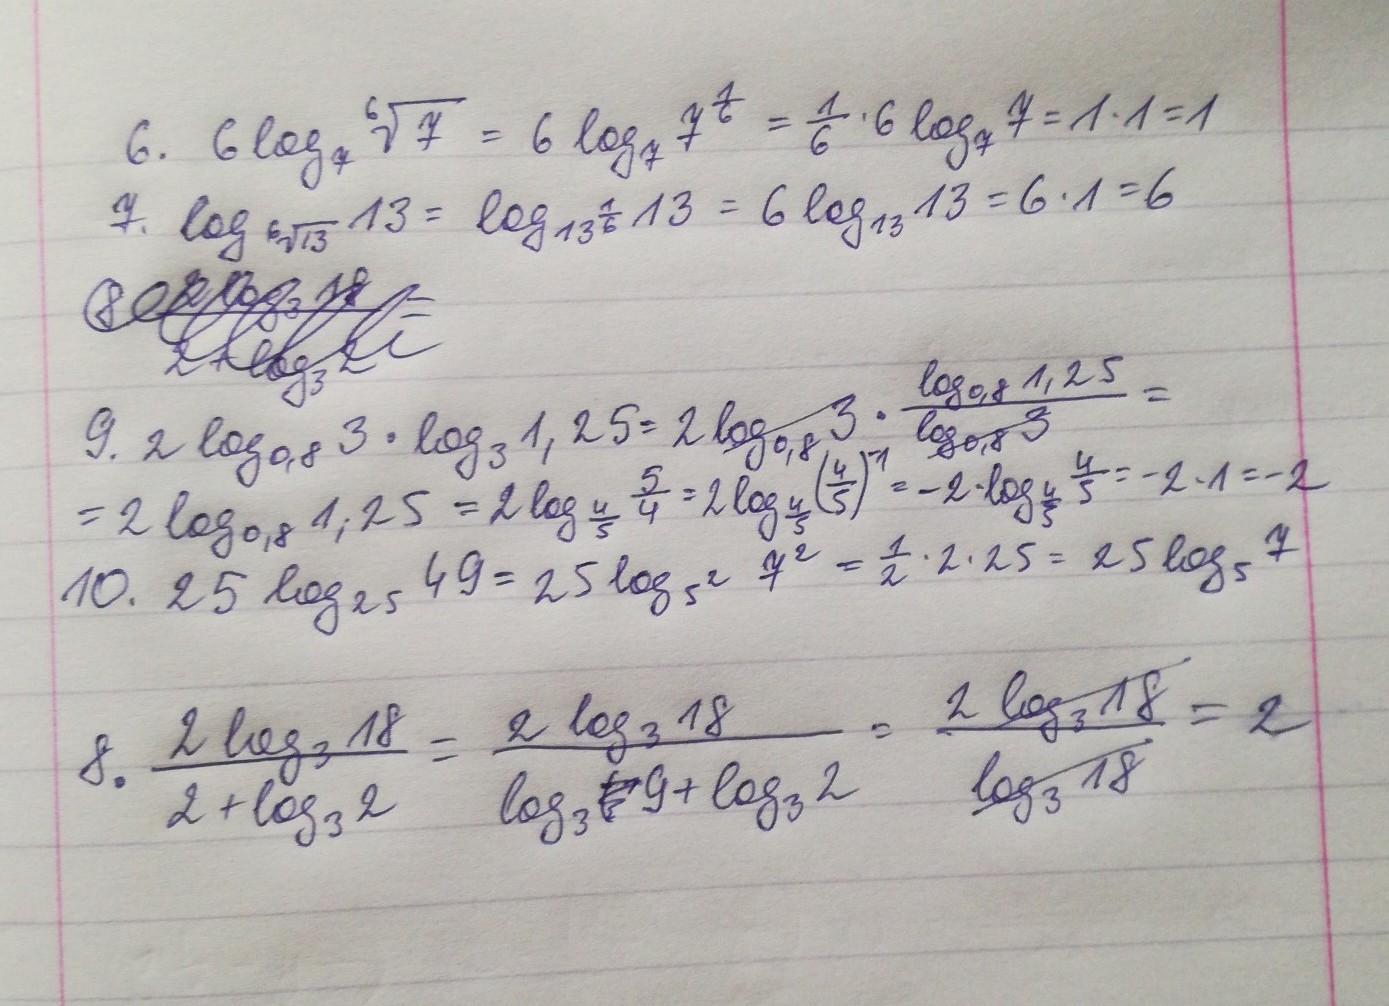 6. 6 log₇ ⁶√7 = 6 log₇ 7^(1/6) = 1/6 · 6 log₇ 7 = 1 · 1 = 1
7. log_(⁶√13) 13 = log_(13^(1/6)) 13 = 6 log₁₃ 13 = 6 · 1 = 6
8 2 log₃ 18 / 2 + log₃ 2 =
9. 2 log_0,8 3 · log₃ 1,25 = 2 log_0,8 3 · log_0,8 1,25 / log_0,8 3 =
= 2 log_0,8 1,25 = 2 log_(4/5) 5/4 = 2 log_(4/5) (4/5)^-1 = -2 · log_(4/5) 4/5 = -2 · 1 = -2
10. 25 log₂₅ 49 = 25 log_5² 7² = 1/2 · 2 · 25 = 25 log₅ 7
8. 2 log₃ 18 / 2 + log₃ 2 = 2 log₃ 18 / log₃ 9 + log₃ 2 = 2 log₃ 18 / log₃ 18 = 2